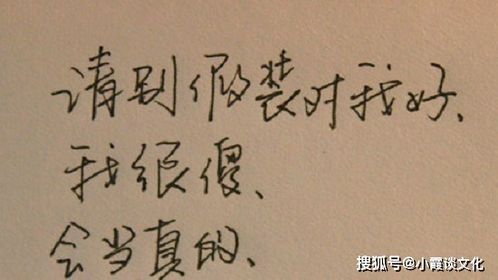 请别假装对我好、
我很傻、
会当真的、
搜狐号@小霞谈文化